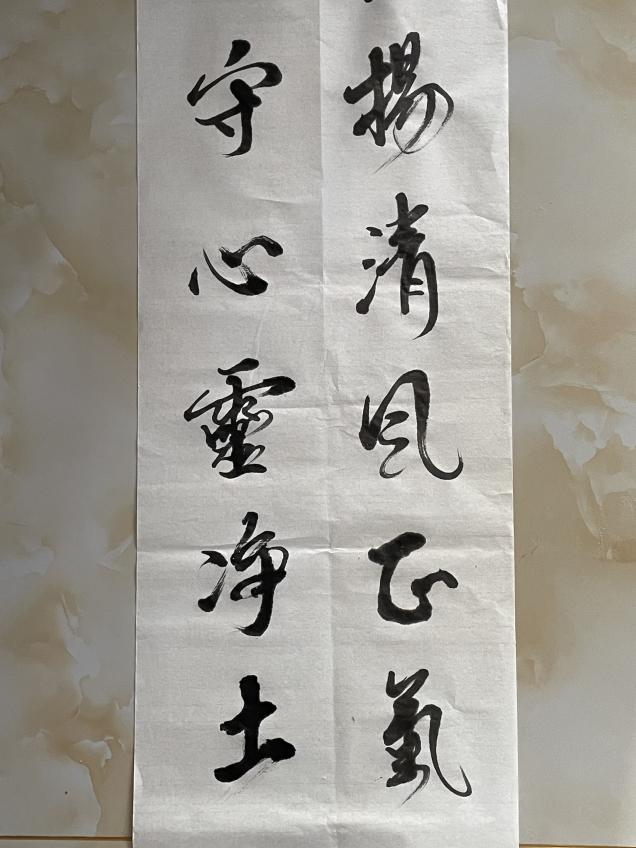 揚清風正氣
守心靈净土